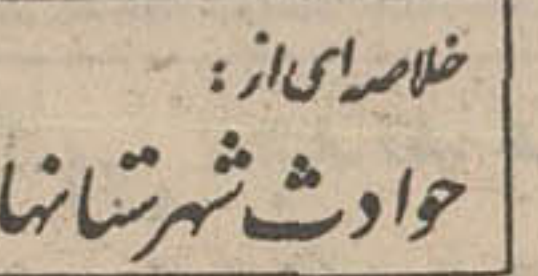 خلاصه‌ای از :
حوادث شهرستانها